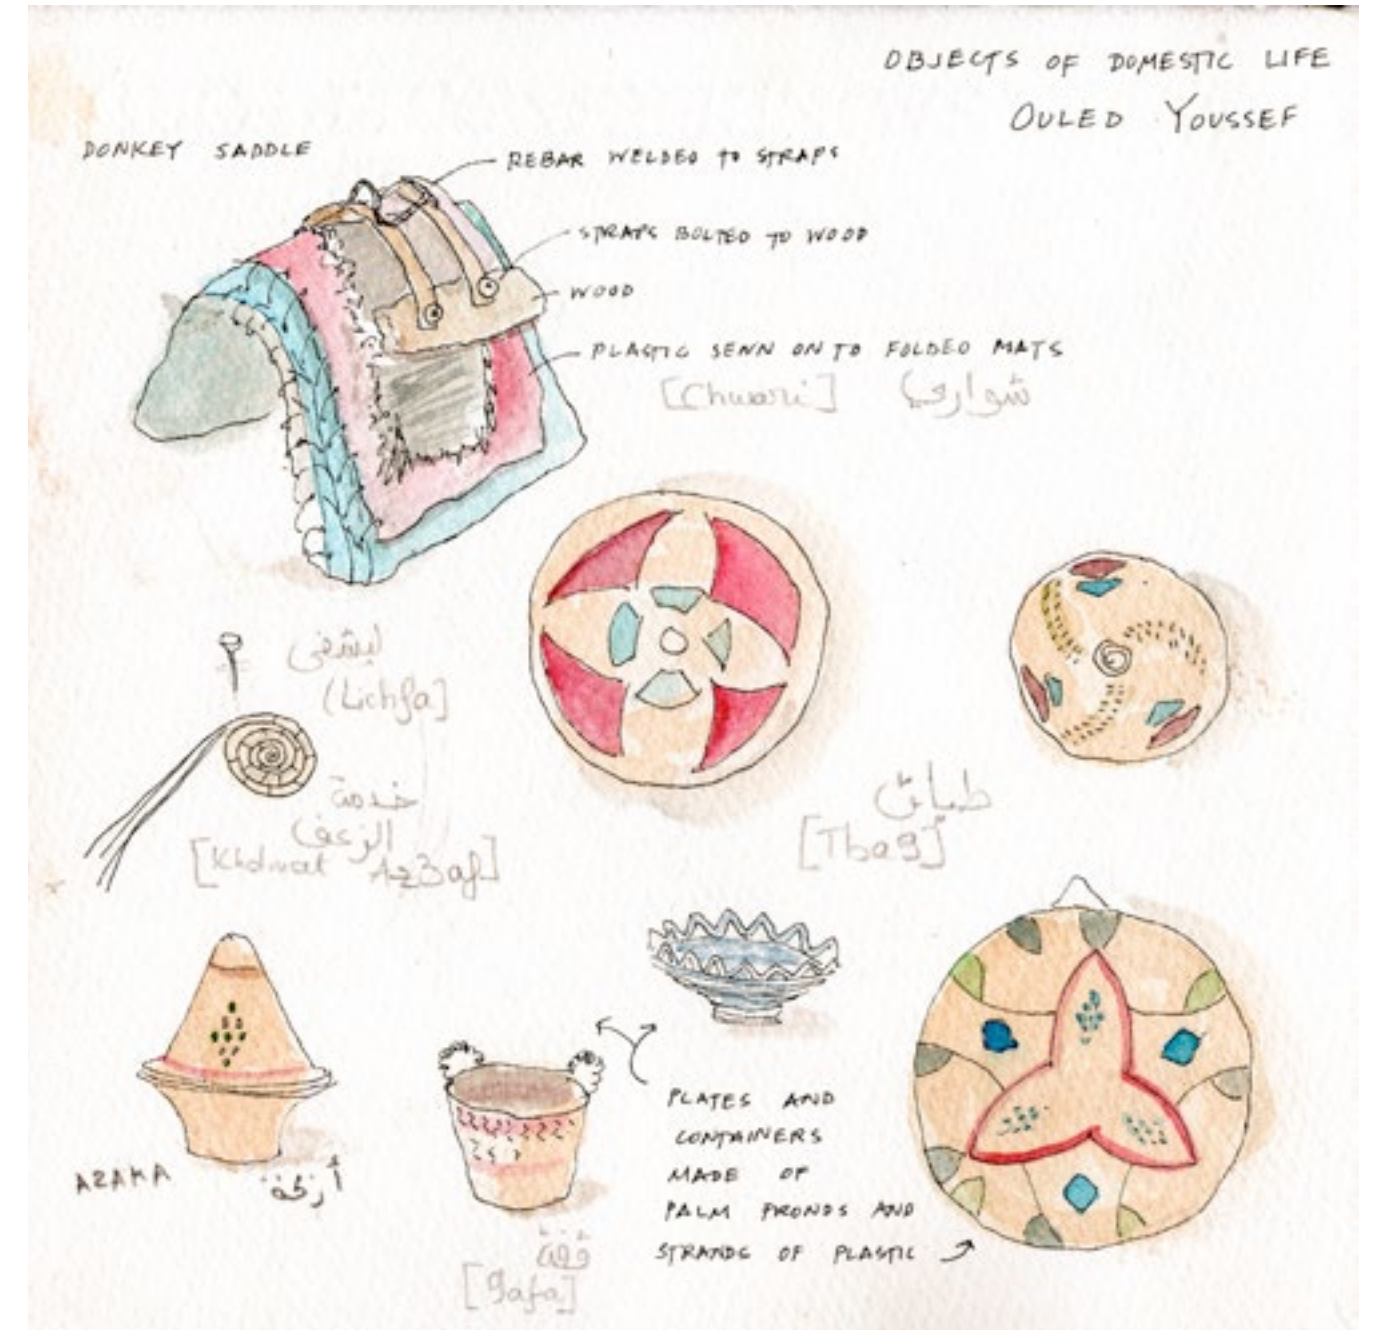 OBJECTS OF DOMESTIC LIFE
OULED YOUSSEF
DONKEY SADDLE
REBAR WELDED TO STRAPS
STRAPS BOLTED TO WOOD
WOOD
PLASTIC SEWN ON TO FOLDED MATS
[Chwari] شواري
ليشفى
(Lichfa]
خدمة
الزعف
[Khdmat Az3af]
طباق
[Tbag]
AZAKA
PLATES AND
CONTAINERS
MADE OF
PALM FRONDS AND
STRANDS OF PLASTIC
قفة
[gafa]